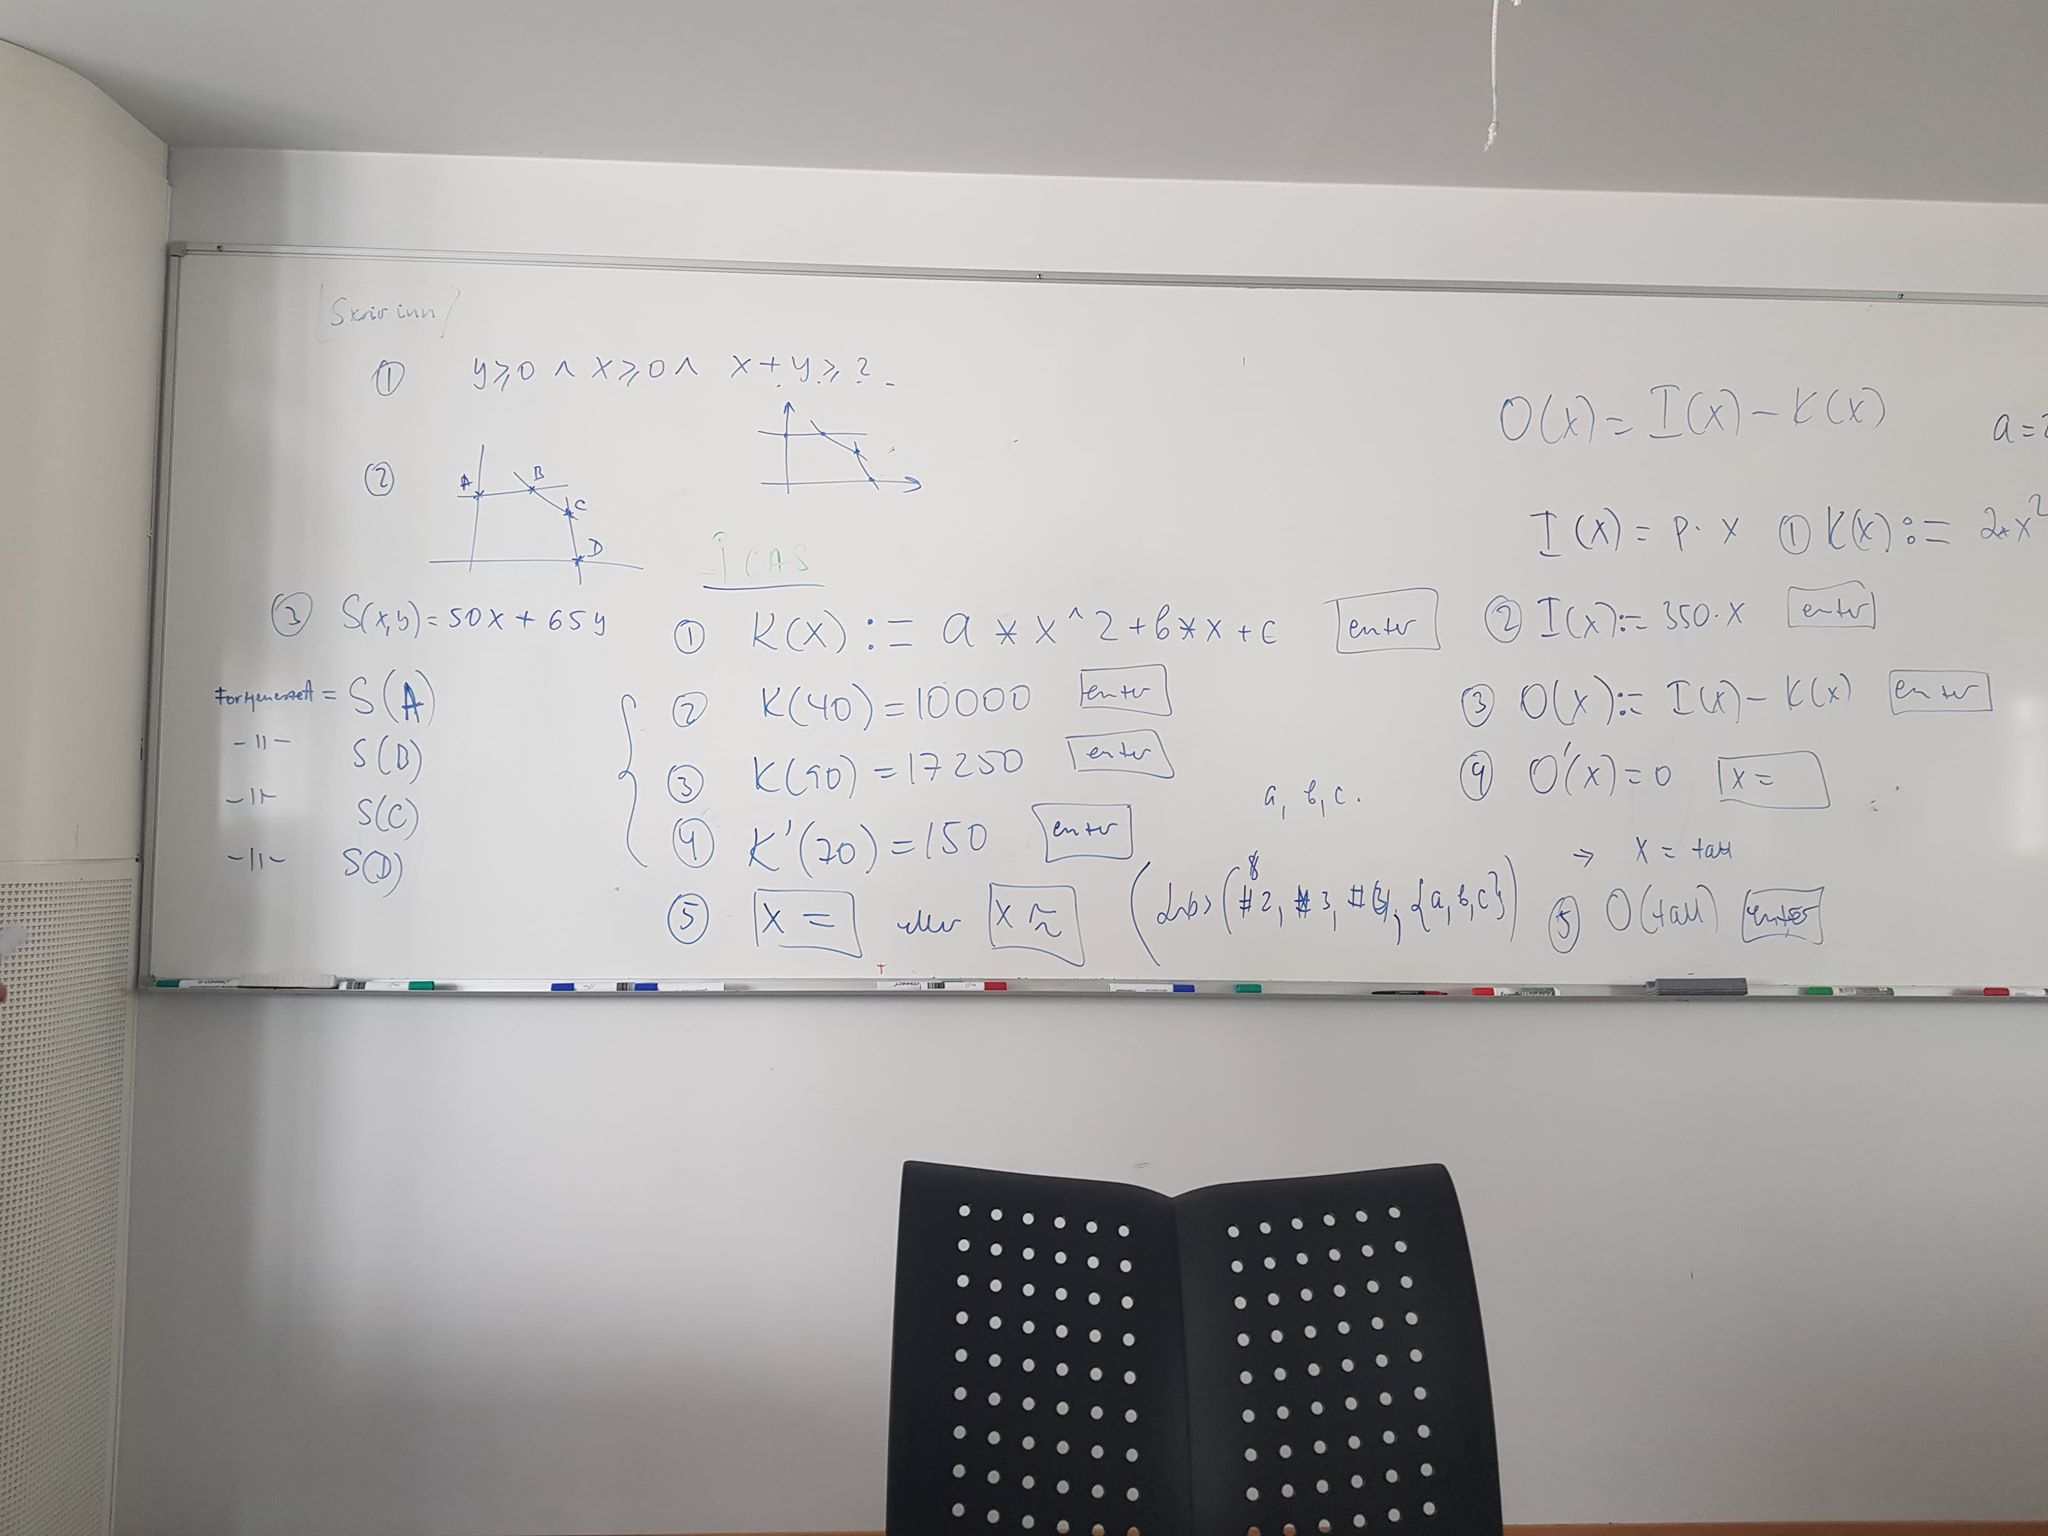 Skriv inn
① y ≥ 0 ∧ x ≥ 0 ∧ x + y ≥ ?
② A B C D
③ S(x,y) = 50x + 65y
= S(A)
-11- S(B)
-11- S(C)
-11- S(D)
i CAS
① K(x) := a * x ^ 2 + b * x + c enter
② K(40) = 10000 enter
③ K(90) = 17250 enter
④ K'(70) = 150 enter
a, b, c.
⑤ x = eller x ≈
( #2, #3, #4, {a, b, c})
O(x) = I(x) - K(x)
a = 2
I(x) = p · x ① K(x) := 2*x²
② I(x) := 350 · x enter
③ O(x) := I(x) - K(x) enter
④ O'(x) = 0 x =
⇒ x = tall
⑤ O(tall) enter